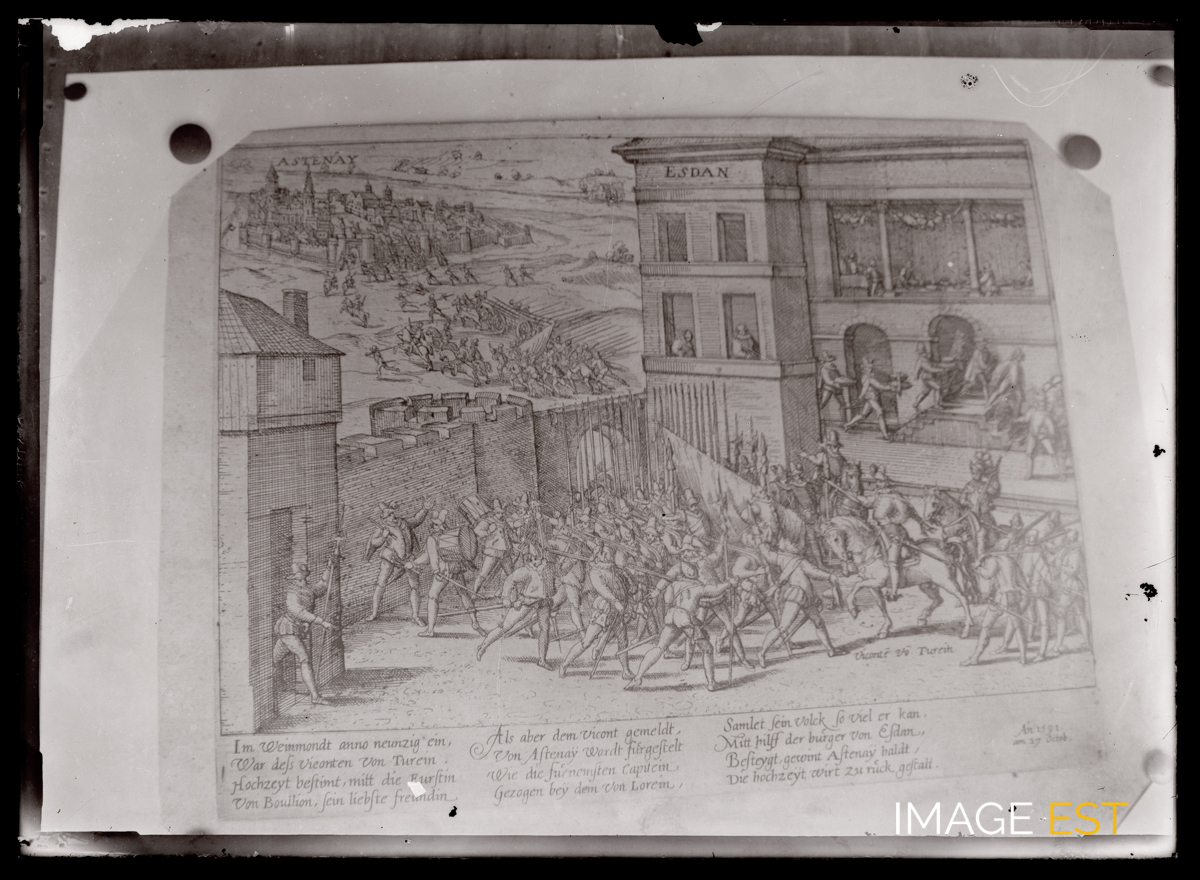 ASTENAY
ESDAN
Viconte Vō Turein
Im Weinmondt anno neunzig ein,
War deſs Viconten Von Turein
Hochzeyt beſtimt, mitt die Furſtin
Von Boullion, ſein liebſte freundin
Als aber dem Vicont gemeldt,
Von Aſtenay Wardt fürgeſtelt
Wie die fürnemſten Capitein,
Gezogen bey dem Von Lorein,
Samlet ſein Volck ſo viel er kan,
Mitt hilff der burger Von Eſdan,
Beſteygt, gewint Aſtenay baldt,
Die hochzeyt wirt zu rück geſtalt.
IMAGE EST